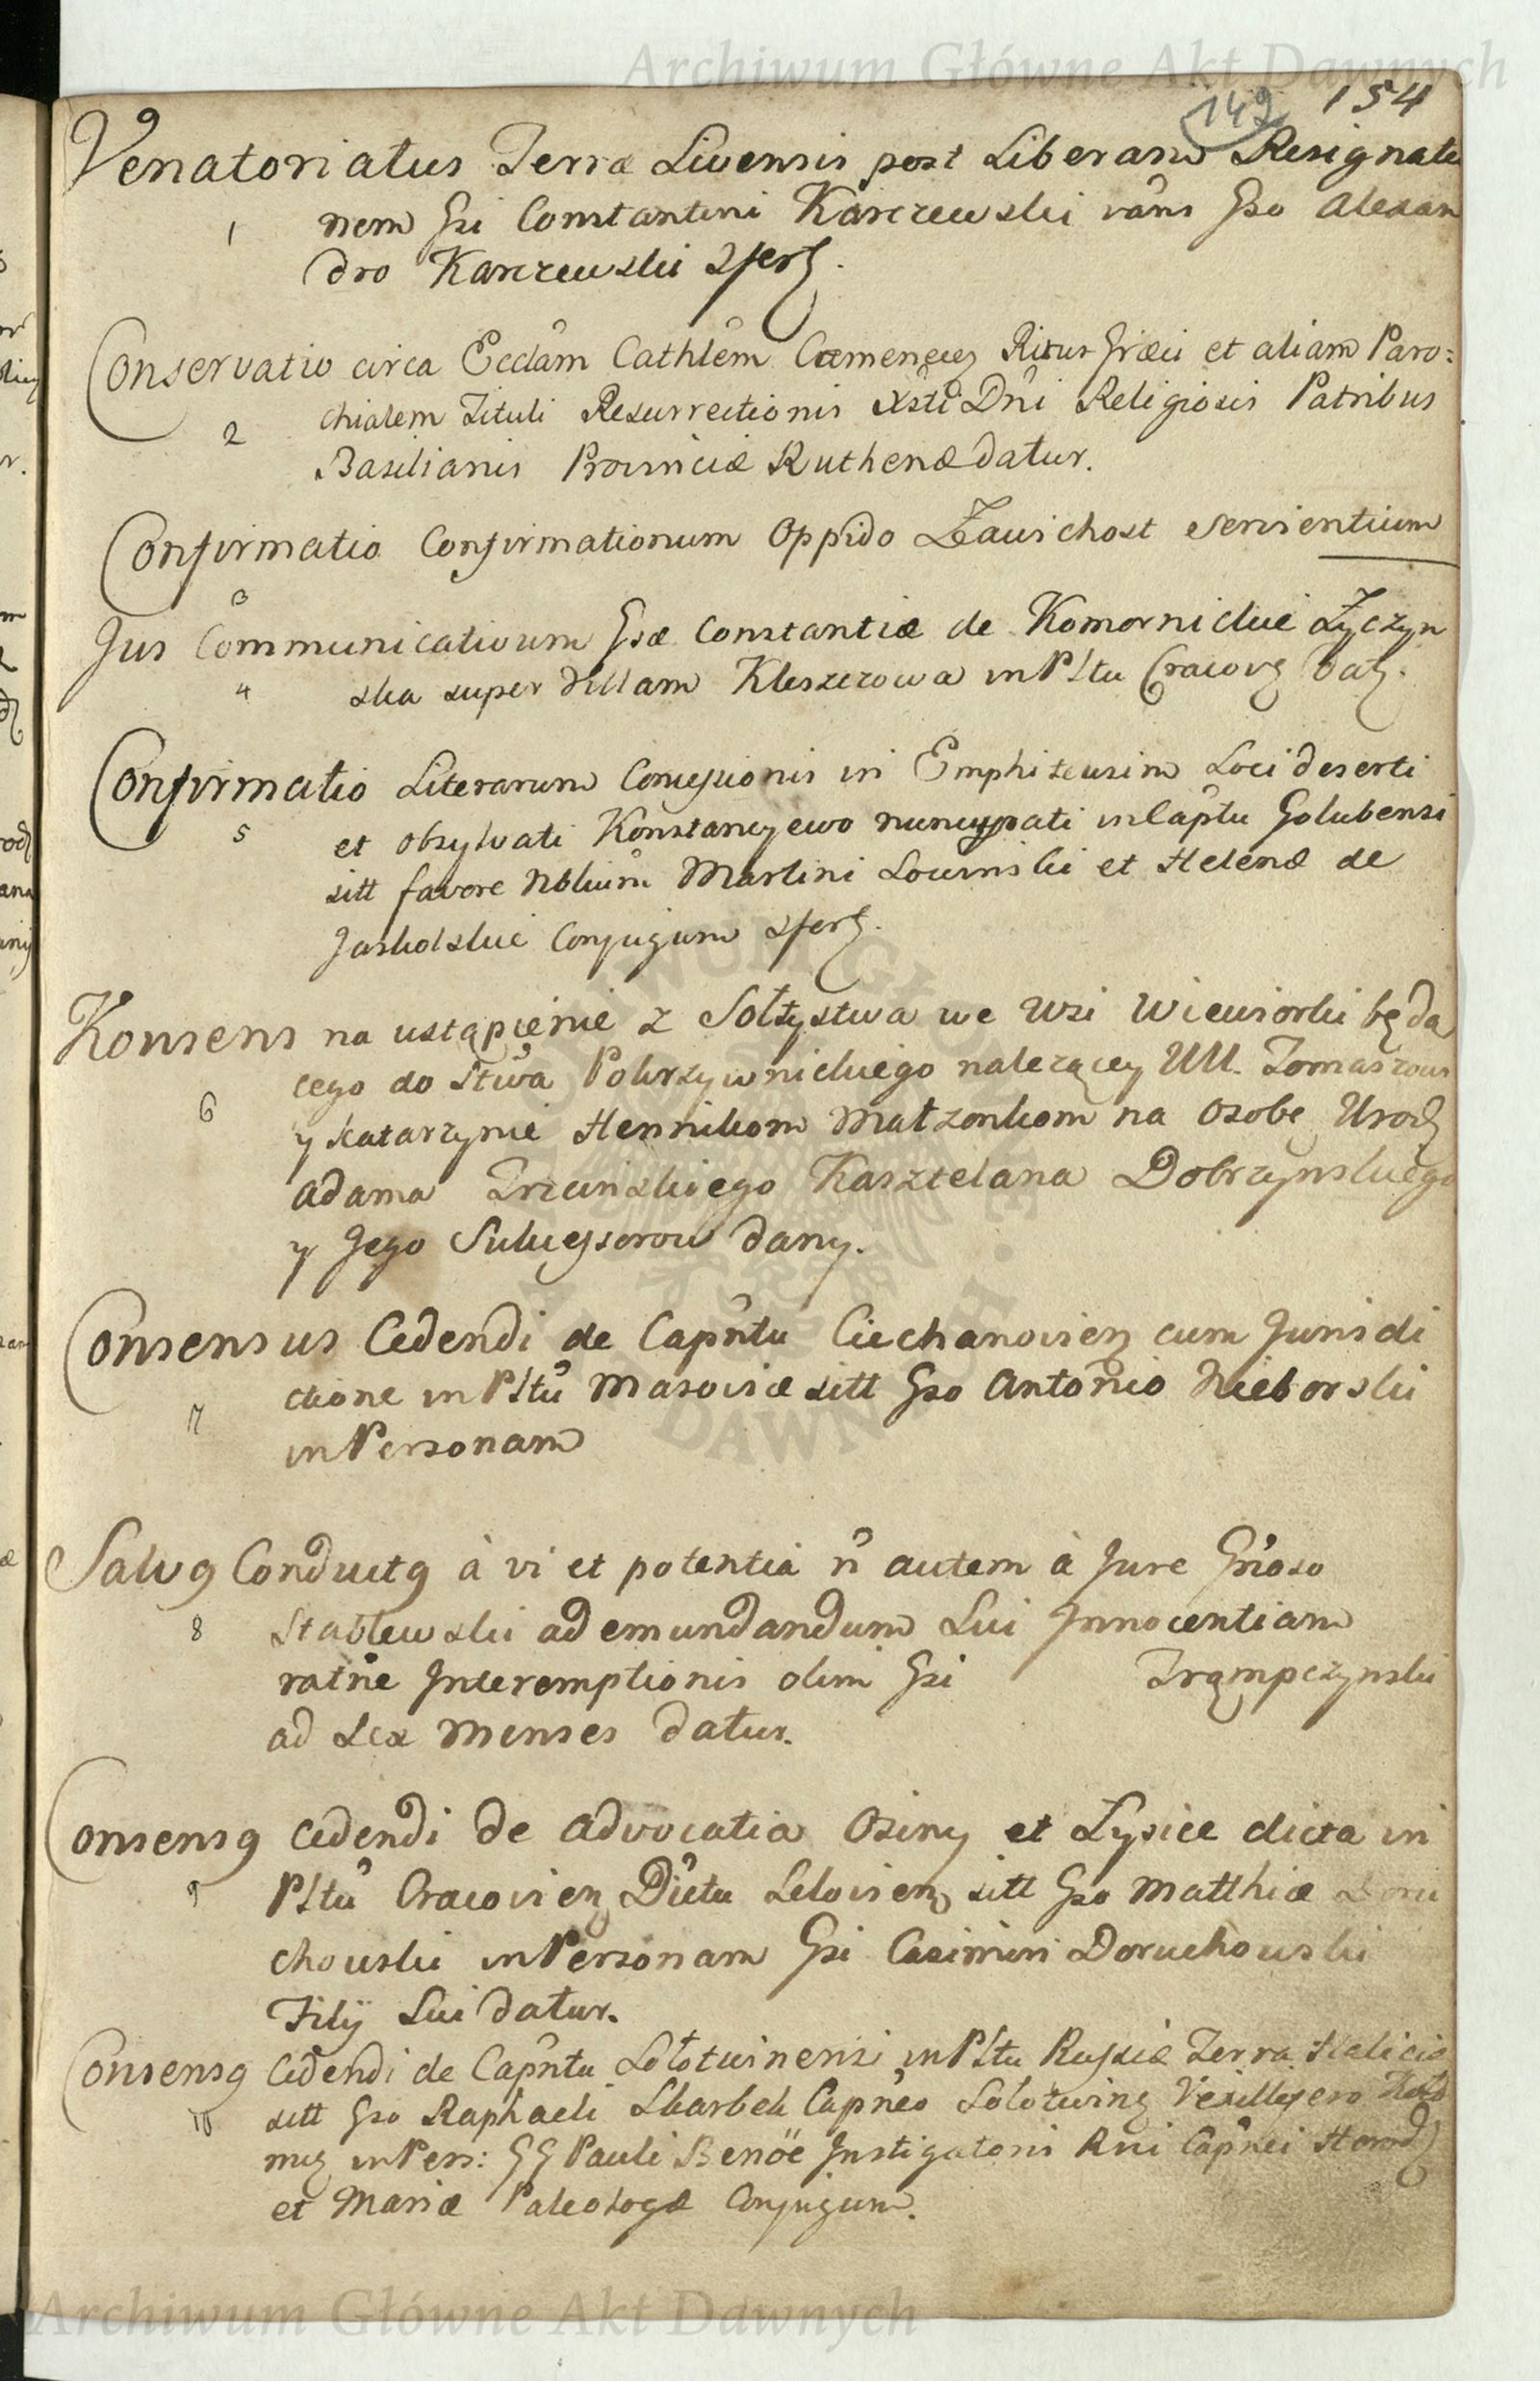 Archiwum Główne Akt Dawnych
149 154
Venatoriatus Terræ Livensis post Liberam Resignatio
1 nem Gsi Constantini Karczewski vâns Gso Alexan
dro Karczewski sfert.
Conservatio circa Ecclâm Cathlêm Camenecen Ritus Græci et aliam Paro=
2 chialem Tituli Resurrectionis Xsti Dñi Religiosis Patribus
Basilianis Provinciæ Ruthenæ datur.
Confirmatio Confirmationum Oppido Zawichost servientium
3
Jus Communicativum Gsæ Constantiæ de Komornickie Życzyn
4 ska super Villam Kleszczowa in Pltu Cracov dat.
Confirmatio Literarum Concessionis in Emphiteusim Loci deserti
5 et obsylvati Konstancyewo nuncupati in Captu Golubensi
sitt favore Nblium Martini et Helenæ de
Conjugum sfert.
Konsens na ustąpienie z Sołtystwa we Wsi Wiewiorki będą
6 cego do Stwa Pokrzywnickiego nalezącey UU. Tomaszowi
y Katarzynie Hennikom Małzonkom na Osobę Urodz
Adama Trzcinskiego Kasztelana Dobrzynskiego
y Jego Sukcessorow dany.
Consensus Cedendi de Capntu Ciechanovien cum Jurisdi
7 ctione in Pltu Masoviæ sitt Gso Antonio Nieborski
in Personam
Salvg Conductg à vi et potentia ñ autem à Jure Gñoso
8 Stablewski ad emundandum Sui Innocentiam
ratñe Interemptionis olim Gsi Trąmpczynski
ad Sex Menses datur.
Consensg cedendi de Advocatia Osiny et Lysice dicta in
9 Pltu Cracovien Dictu Lelovien sitt Gso Matthiæ Doru
chowski in Personam Gsi Casimiri Doruchowski
Filij Sui datur.
Consensg Cedendi de Capntu Solotwinensi in Pltu Russiæ Terra Halicie
10 sitt Gso Raphaeli Skarbek Capneo Solotwin Vexillifero
in Pers: GG Pauli Benöe Instigatoris Rni Capnei Horod
et Mariæ Paleologæ Conjugum.
Archiwum Główne Akt Dawnych